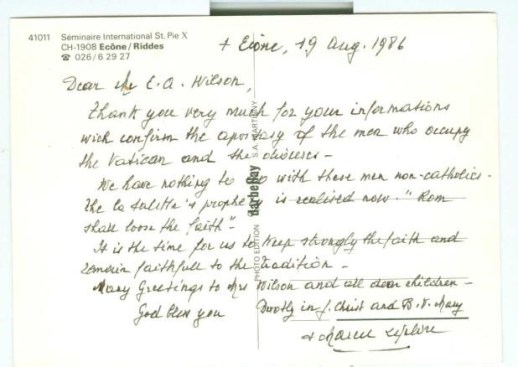 41011 Séminaire International St. Pie X
CH-1908 Ecône/Riddes
☎ 026/6 29 27
+ Ecône, 19 Aug. 1986
Dear Mr C.A. Wilson,
Thank you very much for your informations
wich confirm the apostasy of the men who occupy
the Vatican and the dioceses -
We have nothing to do with these men non-catholics -
The la Salette's prophe is realised now. "Rom
shall loose the faith".
It is the time for us to keep strongly the faith and
remain faithfull to the Tradition -
Many Greetings to Mrs Wilson and all dear children -
God bless you
Devotly in J. Christ and B.V. Mary
+ Marcel Lefebvre
PHOTO EDITION BarbeRay S.A. MARTIGNY